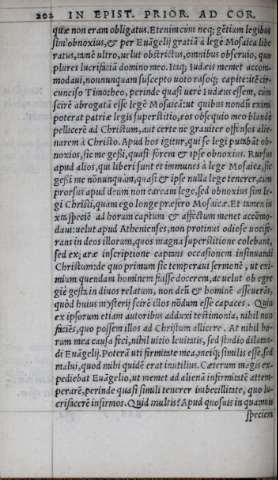 202 IN EPIST. PRIOR. AD COR.
quæ non eram obligatus. Etenim cum neq; gētium legibus
sim obnoxius, & per Euāgelij gratiā à lege Mosaica libe
ratus, tamē ultro, uelut obstrictus, omnibus obseruio, quo
plures lucrifaciā domino meo. Itaq; Iudæis memet accom-
modaui, nonnunquam suscepto uoto rasoq; capite, itē cir-
cunciso Timotheo, perinde quasi uere Iudæus essem, cum
scirē abrogatā esse legē Mosaicā: ut quibus nondū exim
poterat patriæ legis superstitio, eos obsequio meo blandè
pellicerē ad Christum, aut certe ne grauiter offensos alie-
narem à Christo. Apud hos igitur, qui se legi putabāt ob-
noxios, sic me gessi, quasi forem & ipse obnoxius. Rursus
apud alios, qui liberi sunt et immunes à lege Mosaica, sic
gessi me nōnunquam, quasi & ipse nulla lege tenerer, cum
prorsus apud deum non caream lege, sed obnoxius sim le-
gi Christi, quam ego longe præfero Mosaicæ. Et tamen in
specie ad horum captum & affectum memet accōmo-
daui: uelut apud Athenienses, non protinus odiose uocife-
rans in deos illorum, quos magna superstitione colebant,
sed ex aræ inscriptione captans occasionem insinuandi
Christum: de quo primum sic temperaui sermonē, ut exi-
mium quendam hominem fuisse docerem, ac uelut ob egre
giè gesta in diuos relatum, non deū & hominē asseuerās,
quod huius mysterij scirē illos nōdum esse capaces. Quin
ex ipsorum etiam autoribus adduxi testimonia, nihil non
faciēs, quo possem illos ad Christum allicere. At nihil ho-
rum mea causa feci, nihil uitio leuitatis, sed studio dilatan-
di Euangelij. Poterā uti firmitate mea, neq; similis esse, sed
malui, quod mihi quidē erat inutilius. Cæterum magis ex-
pediebat Euāgelio, ut memet ad alienā infirmitatē attem-
perarē, perinde quasi simili tenerer imbecillitate, quo lu-
crifacerē infirmos. Quid multis? Apud quosuis in quamuis
speciem